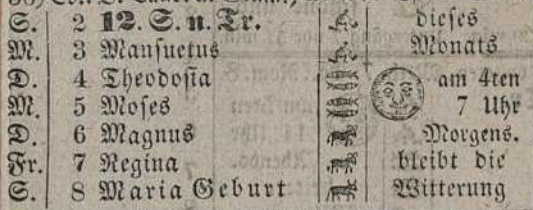 S. 2 12. S. n. Tr. dieses
M. 3 Mansuetus Monats
D. 4 Theodosia am 4ten
M. 5 Moses 7 Uhr
D. 6 Magnus Morgens.
Fr. 7 Regina bleibt die
S. 8 Maria Geburt Witterung